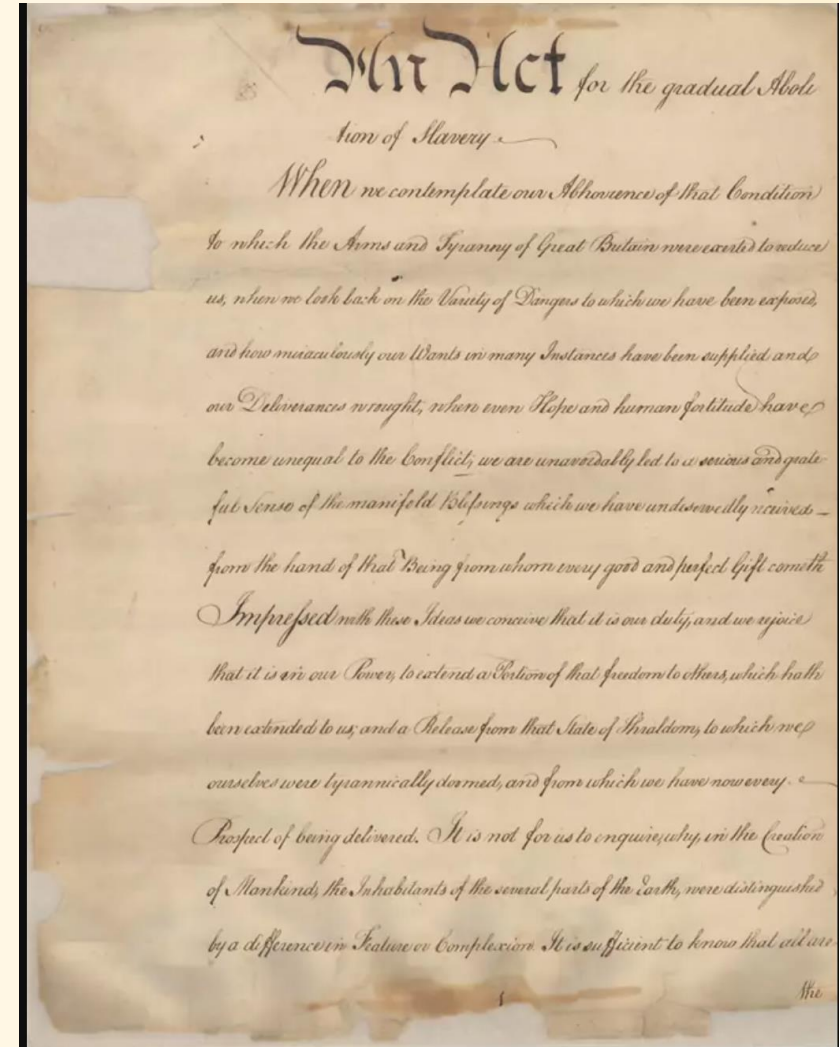 An Act for the gradual Aboli
tion of Slavery
When we contemplate our Abhorrence of that Condition
to which the Arms and Tyranny of Great Britain were exerted to reduce
us, when we look back on the Variety of Dangers to which we have been exposed,
and how miraculously our Wants in many Instances have been supplied and
our Deliverances wrought, when even Hope and human fortitude have
become unequal to the Conflict, we are unavoidably led to a serious and grate-
ful Sense of the manifold Blessings which we have undeservedly received
from the hand of that Being from whom every good and perfect Gift cometh
Impressed with these Ideas we conceive that it is our duty, and we rejoice
that it is in our Power, to extend a Portion of that freedom to others, which hath
been extended to us; and a Release from that State of Thraldom, to which we
ourselves were tyrannically doomed, and from which we have now every
Prospect of being delivered. It is not for us to enquire, why, in the Creation
of Mankind, the Inhabitants of the several parts of the Earth, were distinguished
by a difference in Feature or Complexion. It is sufficient to know that all are
the